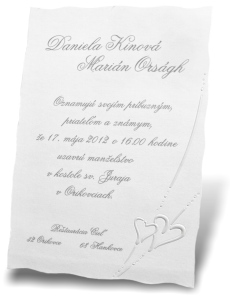 Daniela Kinová
Marián Orságh
Oznamujú svojim príbuzným,
priateľom a známym,
že 17. mája 2012 o 16.00 hodine
uzavrú manželstvo
v kostole sv. Juraja
v Orihovciach.
Cieľ
62
68